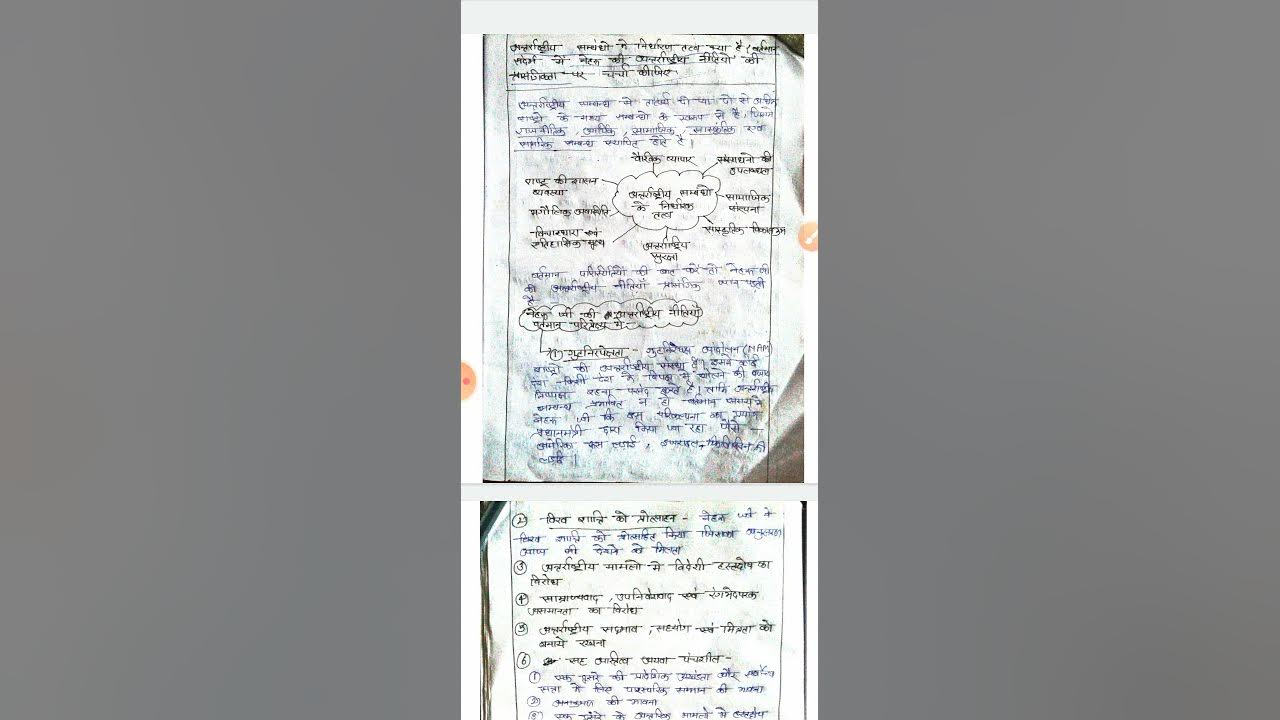 अन्तर्राष्ट्रीय सम्बंधो के निर्धारण तत्व क्या है? वर्तमान
संदर्भ में नेहरू की अन्तर्राष्ट्रीय नीतियों की
प्रासंगिकता पर चर्चा कीजिए
अन्तर्राष्ट्रीय सम्बन्ध से तात्पर्य दो या दो से अधिक
राष्ट्रो के मध्य सम्बन्धो के स्वरूप से है, जिसमे
राजनीतिक, आर्थिक, सामाजिक, सांस्कृतिक एवं
सामरिक सम्बन्ध स्थापित होते है।
वैश्विक व्यापार
संसाधनो की
उपलब्धता
राष्ट्र की शासन
व्यवस्था
अन्तर्राष्ट्रीय सम्बंधो
के निर्धारक
तत्व
सामाजिक
संरचना
भौगोलिक अवस्थिति
सांस्कृतिक
विचारधारा एवं
ऐतिहासिक मूल्य
अन्तर्राष्ट्रीय
सुरक्षा
वर्तमान परिस्थितियों की बात करें तो नेहरू जी
की अन्तर्राष्ट्रीय नीतियाँ प्रासंगिक जान पड़ती
है
नेहरू जी की अन्तर्राष्ट्रीय नीतियाँ
वर्तमान परिप्रेक्ष्य में
(1) गुटनिरपेक्षता - गुटनिरपेक्ष आन्दोलन (NAM)
राष्ट्रो की अन्तर्राष्ट्रीय संस्था है। इसमे कोई
देश किसी देश के विपक्ष में बोलने की बजाय
निष्पक्ष रहना पसंद करते है। ताकि अन्तर्राष्ट्रीय
सम्बन्ध प्रभावित न हो वर्तमान समय मे
नेहरू जी कि इस परिकल्पना का प्रयोग
प्रधानमंत्री द्वारा किया जा रहा जैसे -
अमेरिका रूस लड़ाई, इजराइल-फिलिस्तिन की
लड़ाई।
(2) विश्व शान्ति को प्रोत्साहन - नेहरू जी ने
विश्व शान्ति को प्रोत्साहित किया जिसका
आज भी देखने को मिलता
(3) अन्तर्राष्ट्रीय मामलो मे विदेशी हस्तक्षेप का
विरोध
(4) साम्राज्यवाद, उपनिवेशवाद एवं रंगभेदपरक
असमानता का विरोध
(5) अन्तर्राष्ट्रीय सद्भाव, सहयोग एवं मित्रता को
बनाये रखना
(6) सह अस्तित्व अथवा पंचशील -
(1) एक दूसरे की प्रादेशिक अखंडता और सर्वोच्च
सत्ता मे लिए पारस्परिक सम्मान की भावना
(2) अनाक्रमण की भावना
(3) एक दूसरे के आन्तरिक मामलो मे हस्तक्षेप